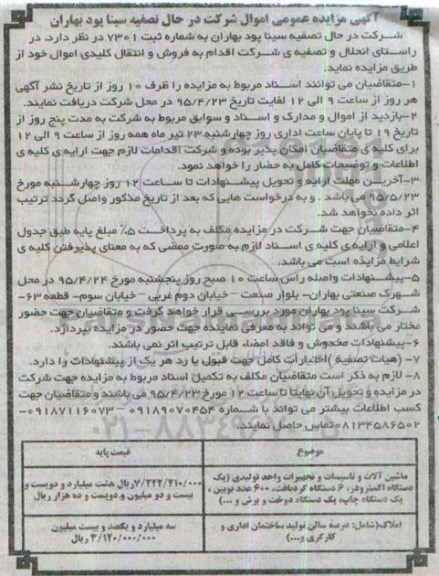 آگهی مزایده عمومی اموال شرکت در حال تصفیه سینا پود بهاران
شرکت در حال تصفیه سینا پود بهاران به شماره ثبت ۷۳۰۱ در نظر دارد، در
راستای انحلال و تصفیه ی شرکت اقدام به فروش و انتقال کلیدی اموال خود از
طریق مزایده نماید.
۱-متقاضیان می توانند اسناد مربوط به مزایده را ظرف ۱۰ روز از تاریخ نشر آگهی
هر روز از ساعت ۹ الی ۱۲ لغایت تاریخ ۹۵/۴/۲۳ در محل شرکت دریافت نمایند.
۲-بازدید از اموال و مدارک و اسناد و سوابق مربوط به شرکت به مدت پنج روز از
تاریخ ۱۹ تا پایان ساعت اداری روز چهارشنبه ۲۳ تیر ماه همه روز از ساعت ۹ الی ۱۲
برای کلیه ی متقاضیان امکان پذیر بوده و شرکت اقدامات لازم جهت ارایه ی کلیه ی
اطلاعات و توضیحات کامل به حضار را خواهد نمود.
۳-آخرین مهلت ارایه و تحویل پیشنهادات تا ساعت ۱۲ روز چهارشنبه مورخ
می باشد . و به درخواست هایی که بعد از تاریخ مذکور واصل گردد ترتیب
اثر داده نخواهد شد
۴-متقاضیان جهت شرکت در مزایده مکلف به پرداخت ۵٪ مبلغ پایه طبق جدول
اعلامی و ارایه ی کلیه ی اسناد لازم به صورت ممضی که به معنای پذیرفتن کلیه ی
شرایط مزایده است می باشد.
۵-پیشنهادات واصله راس ساعت ۱۰ صبح روز پنجشنبه مورخ ۹۵/۴/۲۴ در محل
شهرک صنعتی بهاران- بلوار صنعت - خیابان دوم غربی - خیابان سوم- قطعه ۶۳-
شرکت سینا پود بهاران مورد بررسی قرار خواهد گرفت و متقاضیان جهت حضور
مختار می باشند و می تواند به معرفی نماینده جهت حضور در مزایده بپردازد.
۶-پیشنهادات مخدوش و فاقد امضاء قابل ترتیب اثر نمی باشند.
۷- (هیات تصفیه )اختیارات کامل جهت قبول یا رد هر یک از پیشنهادات را دارد.
۸- لازم به ذکر است متقاضیان مکلف به تکمیل اسناد مربوط به مزایده جهت شرکت
در مزایده و تحویل آن نهایتا تا ساعت ۱۲ مورخ ۹۵/۴/۲۳ می باشند و متقاضیان جهت
کسب اطلاعات بیشتر می تواند با شماره ۰۹۱۸۹۰۷۰۴۵۴ - ۰۹۱۸۷۱۱۶۰۷۳-
۰۸۱۳۴۵۸۶۵۰۲ تماس حاصل نمایند.
موضوع	قیمت پایه
ماشین آلات و تاسیسات و تجهیزات واحد تولیدی (یک
دستگاه اکسترودر، ۶ دستگاه گردبافت، ۶۰۰ عدد بوبین ،
یک دستگاه چاپ، یک دستگاه دوخت و برش و ...)
هشت میلیارد و دویست و
بیست و دو میلیون و دویست و ده هزار ریال
املاک(شامل: عرصه سالن تولید ساختمان اداری و
کارگری و....)
سه میلیارد و یکصد و بیست میلیون
۳/۱۲۰/۰۰۰/۰۰۰ ریال